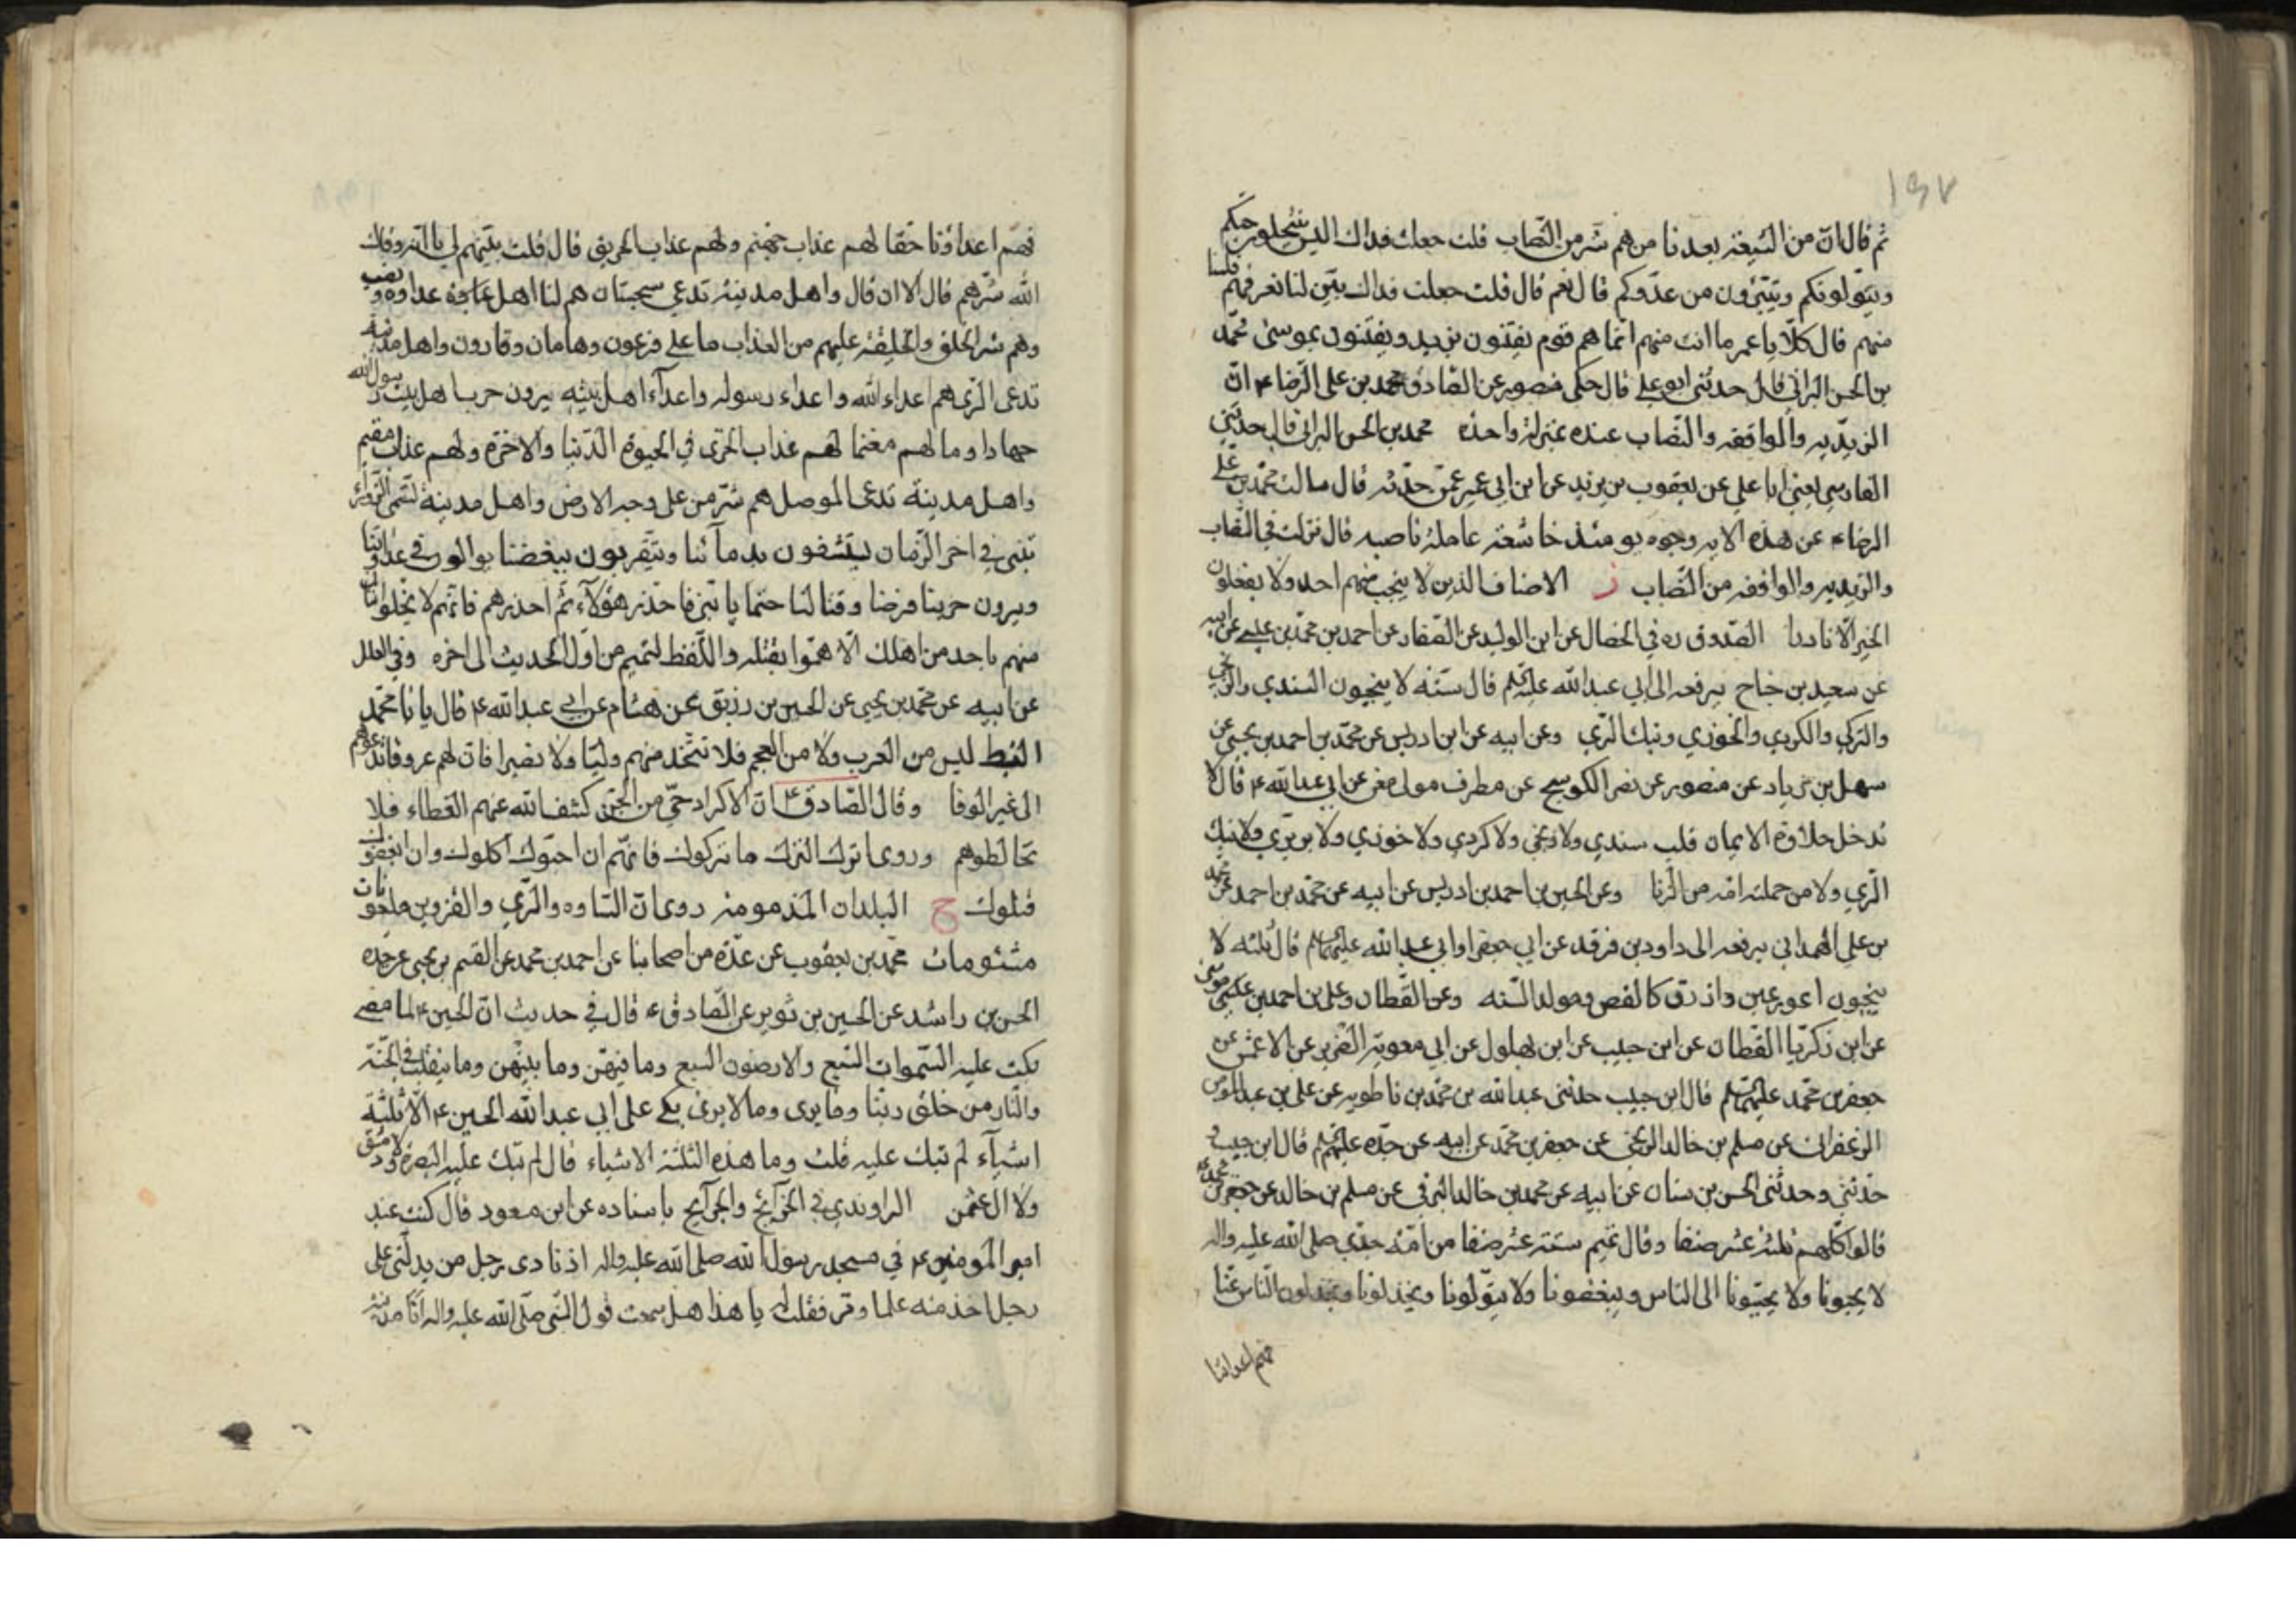 ١٥٧
ثم قال ان من الشيعة بعدنا من هم شر من النصاب قلت جعلت فداك اليس ينتحلون حبكم
ويتولونكم ويتبرؤن من عدوكم قال نعم قال قلت جعلت فداك بين لنا نعرفهم فلسنا
منهم قال كلا يا عمر ما انت منهم انما هم قوم يفتنون بزيد ويفتنون بموسى محمد
بن الحسن البراثي قال حدثني ابو علي قال حكى منصور عن الصادق محمد بن علي الرضا ع ان
الزيدية والواقفة والنصاب عنده بمنزلة واحدة محمد بن الحسن البراثي قال حدثني
الفارسي يعني ابا علي عن يعقوب بن يزيد عن ابن ابي عمير عمن حدثه قال سالت محمد بن علي
الرضاء عن هذه الاية وجوه يومئذ خاشعة عاملة ناصبة قال نزلت في النصاب
والزيدية والواقفة من النصاب ز الاصناف الذين لا ينجب منهم احد ولا يفعلون
الخير الا نادرا الصدوق ره في الخصال عن ابن الوليد عن الصفار عن احمد بن محمد بن عيسى عن ابيه
عن سعيد بن جناح يرفعه الى ابي عبد الله عليه السلم قال ستة لا ينجبون السندي والزنجي
والتركي والكردي والخوزي ونبك الري وعن ابيه عن ابن ادريس عن محمد بن احمد بن يحيى عن
سهل بن زياد عن منصور عن نصر الكوسج عن مطرف مولى معن عن ابي عبد الله ع قال لا
تدخل حلاوة الايمان قلب سندي ولا زنجي ولا كردي ولا خوزي ولا بربري ولا نبك
الري ولا من حملته امه من الزنا وعن الحسين بن احمد بن ادريس عن ابيه عن محمد بن احمد عن محمد
بن علي الهمداني يرفعه الى داود بن فرقد عن ابي جعفر او ابي عبد الله عليهما السلم قال ثلثة لا
ينجبون اعور عين وازرق كالفص ومولد السنه وعن القطان وعلي بن احمد بن موسى
عن ابن زكريا القطان عن ابن حبيب عن ابن بهلول عن ابي معوية الضرير عن الاعمش عن
جعفر بن محمد عليهما السلم قال ابن حبيب حدثني عبد الله بن محمد بن ناطويه عن علي بن عبد المؤمن
الزعفراني عن مسلم بن خالد الزنجي عن جعفر بن محمد عن ابيه عن جده عليهم السلم قال ابن حبيب و
حدثني وحدثني الحسن بن سنان عن ابيه عن محمد بن خالد البرقي عن مسلم بن خالد عن جعفر بن محمد
قالوا كلهم ثلثة عشر صنفا وقال تميم ستة عشر صنفا من امة جدي صلى الله عليه واله
لا يحبونا ولا يحببونا الى الناس ويبغضونا ولا يتولونا ويخذلونا ويخذلون الناس عنا
فهم اعداؤنا
فهم اعداؤنا حقا لهم عذاب جهنم ولهم عذاب الحريق قال قلت بينهم لي يا ابه وقاك
الله شرهم قال الا ان قال واهل مدينة تدعى سجستان هم لنا اهل عداوة ونصب
وهم شر الخلق والخليقة عليهم من العذاب ما على فرعون وهامان وقارون واهل مدينة
تدعى الري هم اعداء الله واعداء رسوله واعداء اهل بيته يرون حرب اهل بيت رسول الله
جهادا ومالهم مغنما لهم عذاب الخزي في الحيوة الدنيا والاخرة ولهم عذاب مقيم
واهل مدينة تدعى الموصل هم شر من على وجه الارض واهل مدينة تسمى الزوراء
تبنى في اخر الزمان يستشفون بدمائنا ويتقربون ببغضنا يوالون في عداوتنا
ويرون حربنا فرضا وقتالنا حتما يا بني فاحذر هؤلاء ثم احذرهم فانهم لا يخلو اثنان
منهم باحد من اهلك الا هموا بقتله واللفظ لتميم من اول الحديث الى اخره وفي العلل
عن ابيه عن محمد بن يحيى عن الحسين بن زريق عن هشام عن ابي عبد الله ع قال يا با محمد
النبط ليس من العرب ولا من العجم فلا تتخذ منهم وليا ولا نصيرا فان لهم عروقا تدعوهم
الى غير الوفا وقال الصادق ع ان الاكراد حي من الجن كشف الله عنهم الغطاء فلا
تخالطوهم وروى اترك الترك ما تركوك فانهم ان احبوك اكلوك وان ابغضوك
قتلوك ح البلدان المذمومة روى ان الساوه والري والقزوين ملعونات
مشئومات محمد بن يعقوب عن عدة من اصحابنا عن احمد بن محمد عن القسم بن يحيى عن جده
الحسن بن راشد عن الحسين بن ثوير عن الصادق ع قال في حديث ان الحسين ع لما مضى
بكت عليه السموات السبع والارضون السبع وما فيهن وما بينهن وما ينقلب في الجنة
والنار من خلق ربنا وما يرى وما لا يرى بكى على ابي عبد الله الحسين ع الا ثلثة
اشياء لم تبك عليه قلت وما هذه الثلثة الاشياء قال لم تبك عليه البصرة ولا دمشق
ولا ال عثمن الراوندي في الخرايج والجرايح باسناده عن ابن مسعود قال كنت عند
امير المؤمنين ع في مسجد رسول الله صلى الله عليه واله اذ نادى رجل من يدلني على
رجل اخذ منه علما ومر فقلت له يا هذا هل سمعت قول النبي صلى الله عليه واله انا مدينة